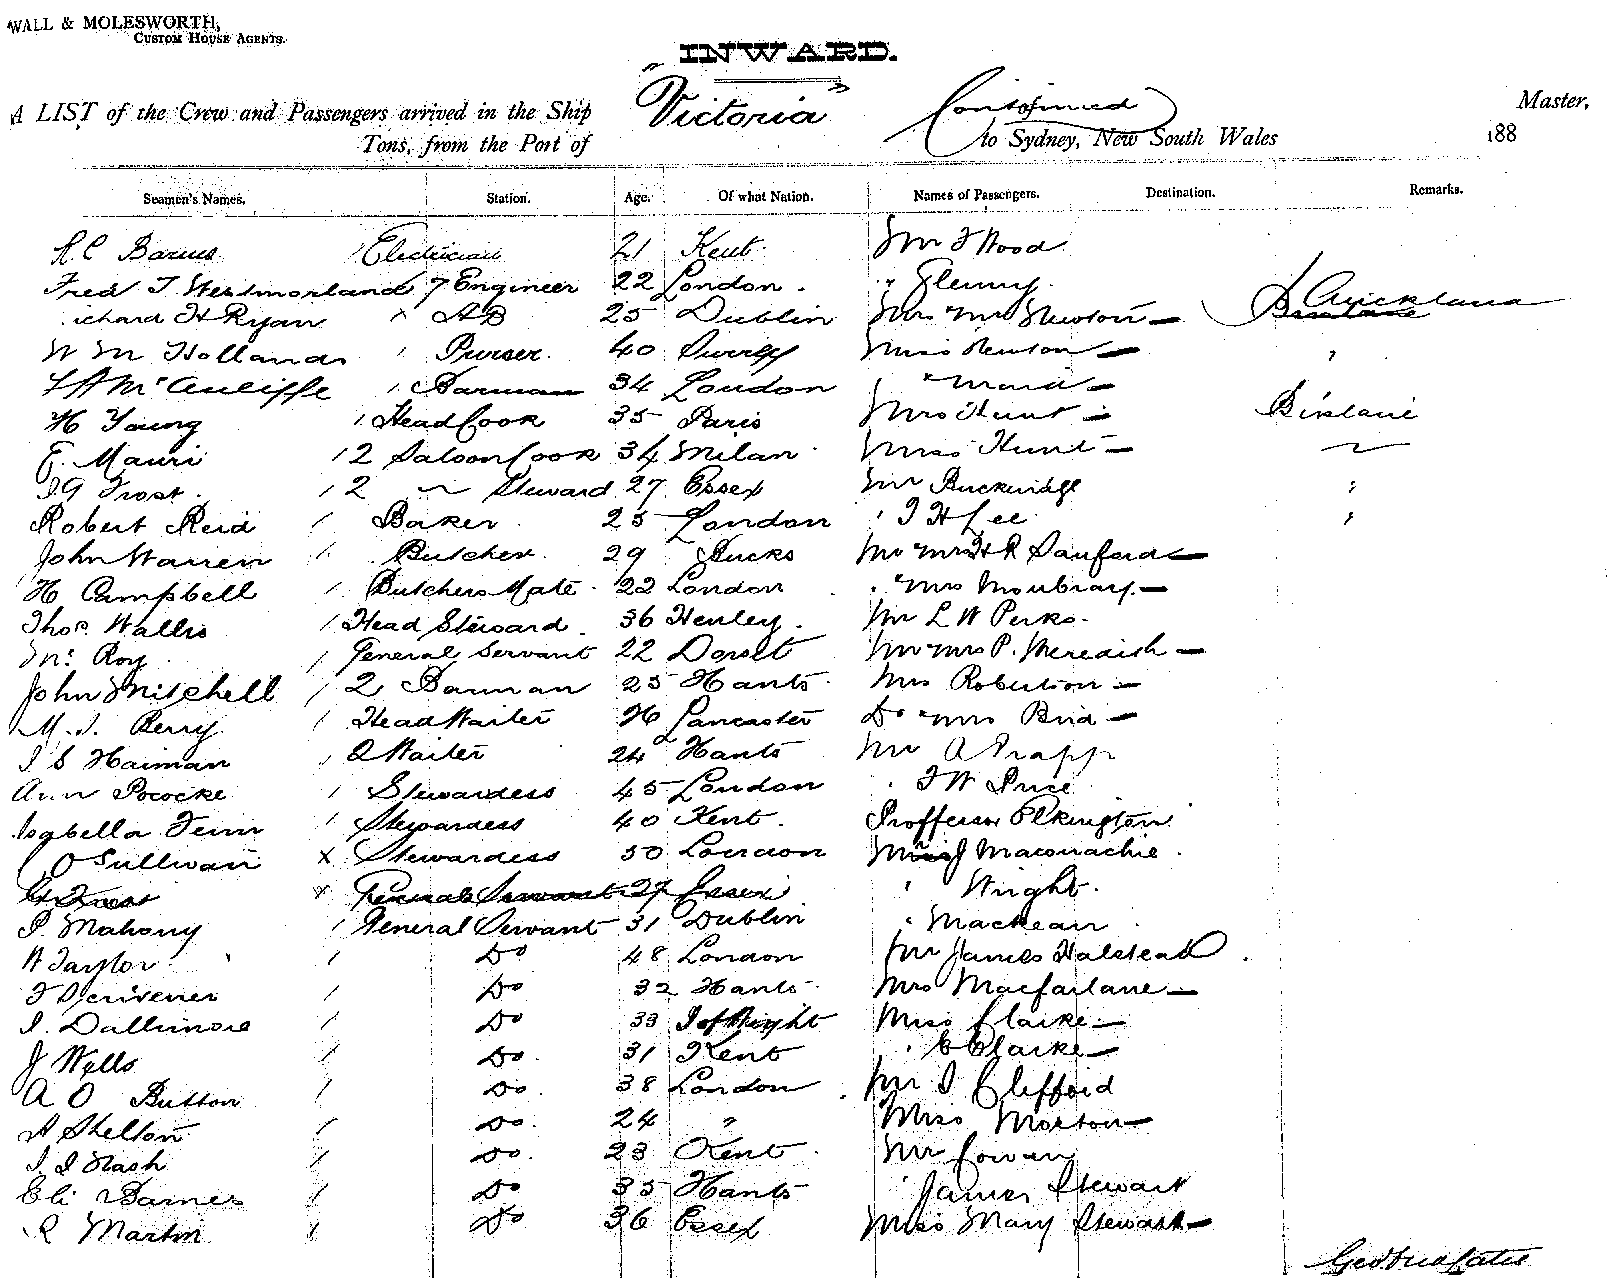 WALL & MOLESWORTH,
CUSTOM HOUSE AGENTS.
INWARD.
A LIST of the Crew and Passengers arrived in the Ship "Victoria" Continued Master,
Tons, from the Port of to Sydney, New South Wales 188
Seamen's Names. Station. Age. Of what Nation. Names of Passengers. Destination. Remarks.
R. C Barnes 1 Electrician 21 Kent Mr F Wood
Fred T Westmorland 7 Engineer 22 London. " Glenny.
ichard H Ryan x AB 25 Dublin Mr & Mrs Newton — Auckland
W M Hollands 1 Purser. 40 Surrey Miss Newton — "
McAuliffe 1 Barman 34 London " Maid —
H Young 1 Head Cook 35 Paris Mrs Hunt — Brisbane
E. Mauri 1 2 Saloon Cook 34 Milan Miss Hunt — "
Frost. 1 2 " Steward 27 Essex Mr Buckridge "
Robert Reid 1 Baker 25 London " T H Lee "
John Warren 1 Butcher 29 Bucks Mr & Mrs H R Sanford —
H Campbell 1 Butchers Mate 22 London " Mrs Moubray. —
Thos. Wallis 1 Head Steward. 36 Henley. Mr L W Perks.
Roy 1 General Servant 22 Dorset Mr & Mrs P. Meredith —
John Mitchell 1 2 Barman 25 Hants Mrs Robertson —
M. J. Perry 1 Head Waiter 26 Lancaster Dr & Mrs Bird —
J S Haiman 1 2 Waiter 24 Hants Mr A Trapp
Ann Pococke 1 Stewardess 45 London " F W Price
Isabella Fenn 1 Stewardess 40 Kent. Proffessor Elkington
O Sullivan x Stewardess 50 London J Maconachie.
Frost x General Servant 27 Essex " Wright.
P. Mahony 1 General Servant 31 Dublin " Mackean
W Taylor 1 Do 48 London Mr James Halstead.
F Scrivener 1 Do 32 Hants Mrs Macfarlane —
J. Dallimore 1 Do 33 I of Wight Miss Clarke —
J Wells 1 Do. 31 Kent " E Clarke —
A O Button 1 Do. 38 London Mr J Clifford
A Shelton 1 Do. 24 " Miss Morton —
J. J Nash 1 Do. 23 Kent Mr Cowan
Eli Barnes 1 Do 35 Hants " James Stewart
R Martin 1 Do 36 Essex Miss Mary Stewart —